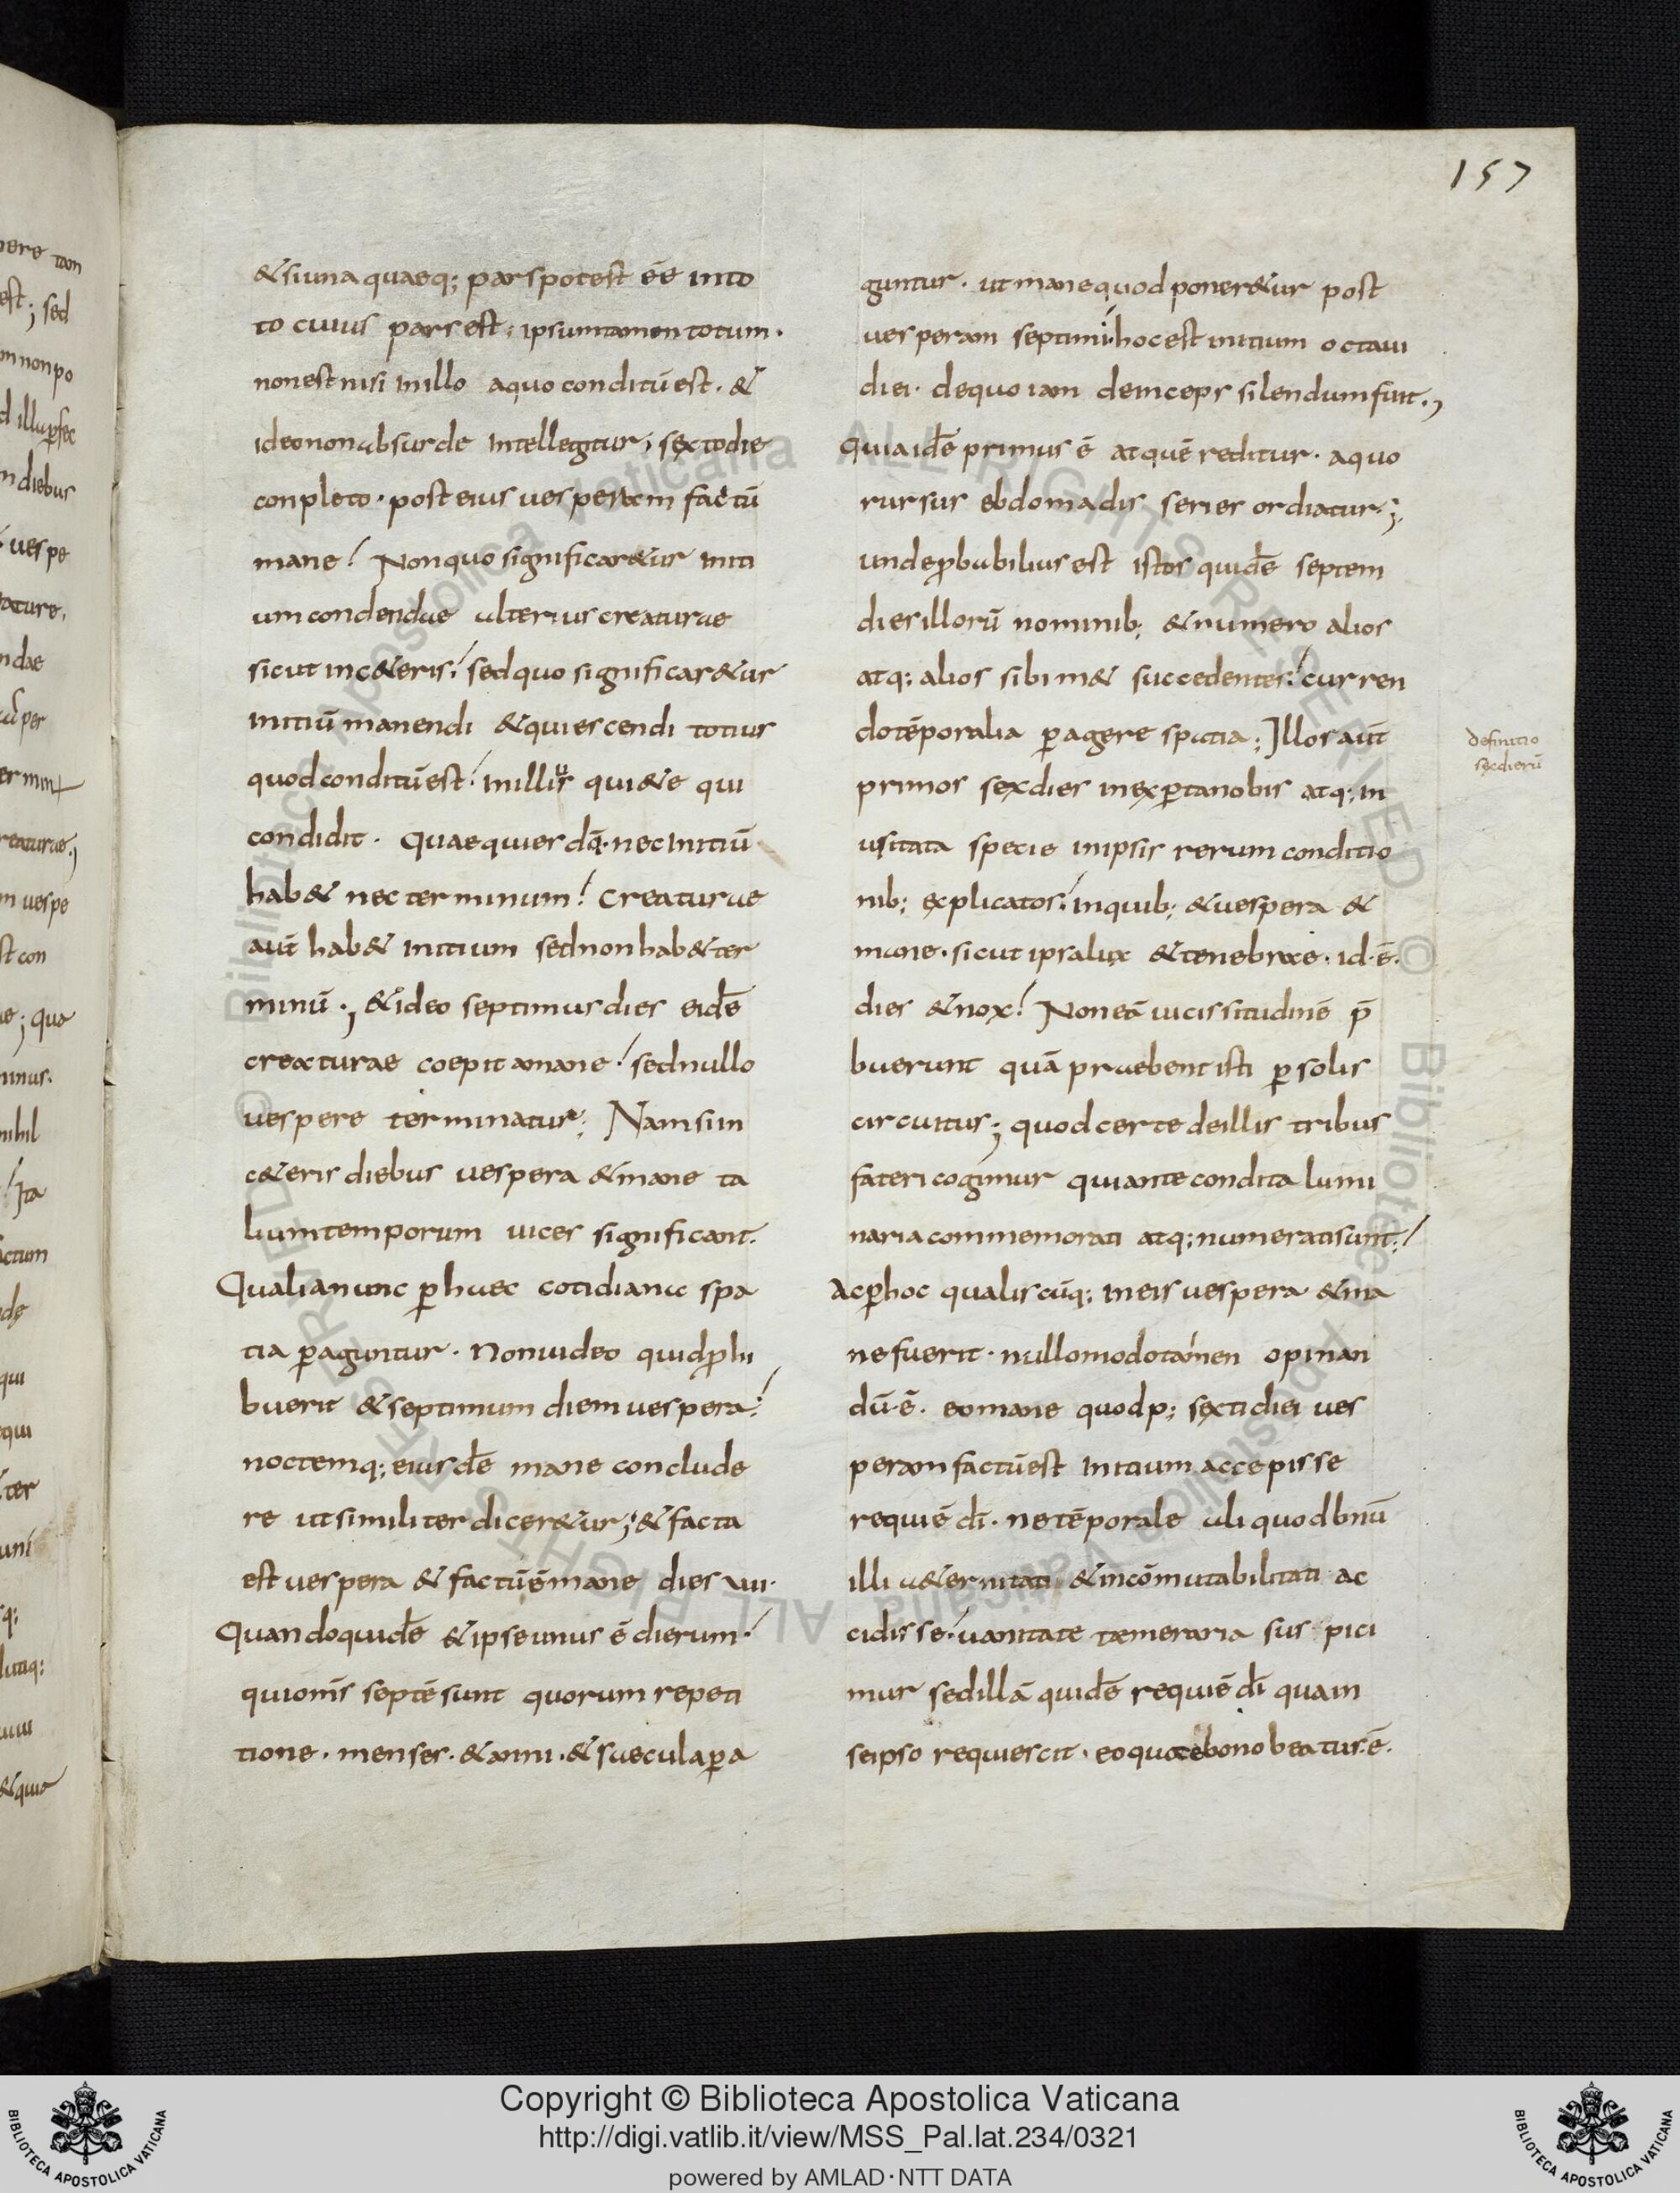 157
& si una quaeq; pars potest ee in to
to cuius pars est; ipsum tamen totum.
non est nisi in illo a quo conditū est. &
ideo non absurde intellegitur; sexto die
conpleto. post eius vesperam factū
mane! Non quo significar&ur initi
um condendae ulterius creaturae
sicut in c&eris! sed quo significar&ur
initiū manendi & quiescendi totius
quod conditū est! in illius qui&e qui
condidit. Quae quies dī. nec initiū
hab& nec terminum! creaturae
aut̄ hab& initium sed non hab& ter
minū., & ideo septimus dies eidē
creaturae coepit a mane! sed nullo
vespere terminatur; Nam si in
c&eris diebus vespera & mane ta
lium temporum vices significant.
Qualia nunc p haec cotidiana spa
tia paguntur. Non video quid phi
buerit & septimum diem vespera!
noctemq; eiusdē mane conclude
re ut similiter dicer&ur; & facta
est vespera & factū ē mane dies vii.
Quandoquidē & ipse unus ē dierum!
qui om̄s septē sunt quorum repeti
tione. menses. & anni. & saecula pa
guntur. ut mane quod poner&ur post
vesperam septimi. hoc est initium octavi
diei. de quo iam deinceps silendum fuit.,
Quia idē primus ē at quē reditur. a quo
rursus ebdomadis series ordiatur;
unde pbabilius est istos quidē septem
dies illorū nominib; & numero alios
atq; alios sibim& succedentes! curren
do tēporalia pagere spatia; Illos aut̄
primos sex dies inexpta nobis atq; in
usitata specie in ipsis rerum conditio
nib; explicatos! in quib; & vespera &
mane. sicut ipsa lux & tenebrae. id.ē.
dies & nox! Non eā vicissitudinē p̄
buerunt quā praebent isti p solis
circuitus; quod certe de illis tribus
fateri cogimur qui ante condita lumi
naria commemorati atq; numerati sunt;
Ac p hoc qualiscūq; in eis vespera & ma
ne fuerit. nullo modo tamen opinan
dū.ē. eo mane quod p; sexti diei ves
peram factū est initium accepisse
requiē dī. ne tēporale aliquod bnū
illi a&ernitati & incōmutabilitati ac
cidisse! vanitate temeraria suspici
mur sed illā quidē requiē dī quam
seipso requiescit. eo quo bono beatus.ē.
definitio
sex dierū
Copyright © Biblioteca Apostolica Vaticana
http://digi.vatlib.it/view/MSS_Pal.lat.234/0321
powered by AMLAD·NTT DATA
BIBLIOTECA APOSTOLICA VATICANA
BIBLIOTECA APOSTOLICA VATICANA